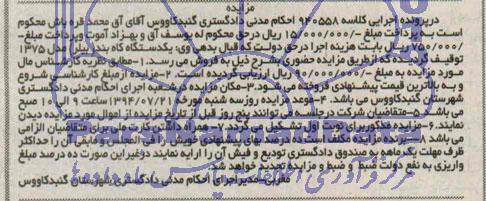 مزایده
درپرونده اجرایی کلاسه ۹۴۰۵۵۸ احکام مدنی دادگستری گنبدکاووس آقای آق محمد قره باش محکوم
است به پرداخت مبلغ -/۱۵/۰۰۰/۰۰۰ ریال در حق محکوم له یوسف آق و بهزاد آموت وپرداخت مبلغ-
/۷۵۰/۰۰۰ ریال بابت هزینه اجرا درحق دولت که قبال بدهی وی: یکدستگاه کاه بند(بیلر) مدل ۱۳۷۵
توقیف گردیده که ازطریق مزایده حضوری بشرح ذیل به فروش می رسد.۱-مطابق نظریه کارشناس مال
مورد مزایده به مبلغ -/۴۰/۰۰۰/۰۰۰ ریال ارزیابی گردیده است.۲-مزایده ازمبلغ کارشناسی شروع
و به بالاترین قیمت پیشنهادی فروخته می شود.۳-مکان مزایده درشعبه اجرای احکام مدنی دادگستری
شهرستان گنبدکاووس می باشد. ۴-موعد مزایده روزسه شنبه مورخ ۱۳۹۴/۰۷/۲۱ ساعت ۹ الی ۱۰ صبح
می باشد.۵-متقاضیان شرکت درجلسه می توانند پنج روز قبل از تاریخ مزایده از اموال مورد مزایده دیدن
نمایند.۶-مزایده مذکوربرای نوبت اول تشکیل می گردد.۷-همراه داشتن کارت ملی برای متقاضیان الزامی
می باشد ۸-برنده مزایده مکلف است ده درصد بهای پیشنهادی خویش را فی المجلس و مابقی آن را حداکثر
ظرف مهلت یکماهه به صندوق دادگستری تودیع و فیش آن را ارایه نمایند درغیراین صورت ده درصد مبلغ
واریزی به نفع دولت ضبط و ضبط و مزایده تجدید خواهد شد.
مغربی-مدیراجرای احکام مدنی دادگستری شهرستان گنبدکاووس